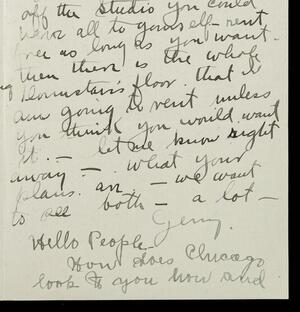 off the studio you could
have all to yourself – rent
free as long as you want.
then there is the whole
downstairs floor that I
am going to rent unless
you think you would want
it. – let me know right
away – . what your
plans are – we want
to see both – a lot –
Gerry.
Hello People –
How does Chicago
look to you now and